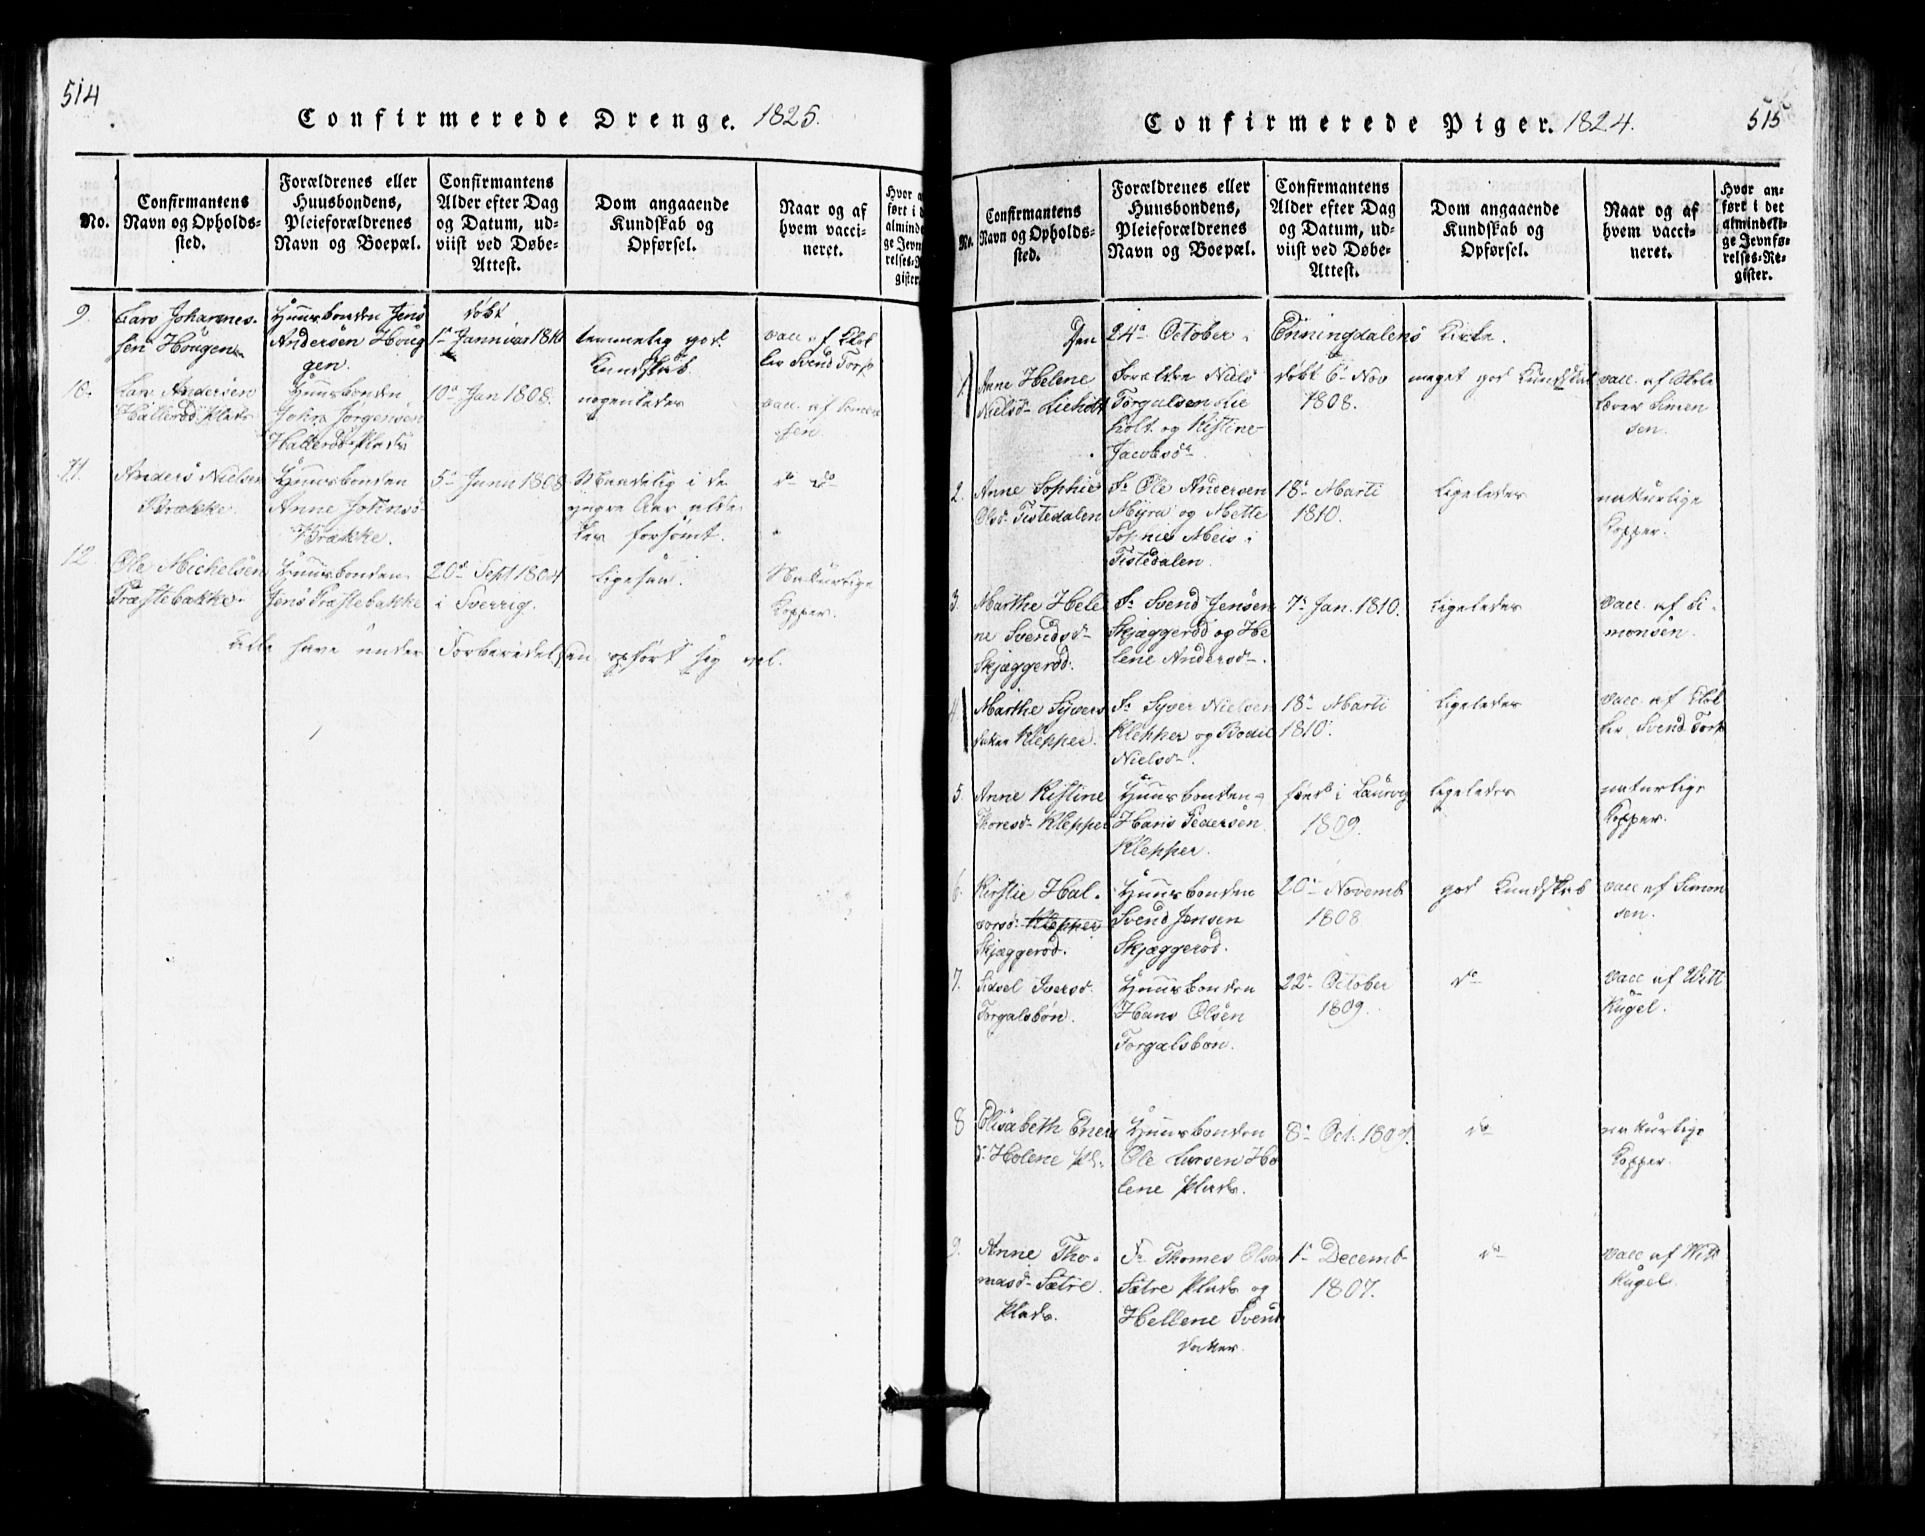 514
Confirmerede Drenge. 1825.
No.
Confirmantens
Navn og Opholds-
sted.
Forældrenes eller
Huusbondens,
Pleieforældrenes
Navn og Boepæl.
Confirmantens
Alder efter Dag
og Datum, ud-
viist ved Døbe-
Attest.
Dom angaaende
Kundskab og
Opførsel.
Naar og af
hvem vacci-
neret.
9.
Lars Johannes-
sen Hougen
Huusbonden Jens
Andersen Houg
gen.
døbt
1ª Januar 1810
temmelig god
Kundskab.
vacc. af Klok
ker Svend Torp
10.
Lars Andersen
Hallerød Plads
Huusbonden
John Jørgensen
Hallerød Plads
10ª Jan 1808.
nogenledes
vacc. af Simon
sen.
11.
Anders Nielsen
Brække.
Huusbonden
Anne Johnsd
Brække.
5ª Juni 1808
Maadelig i de
yngre Aar alde
les forsømt.
do do
12
Ole Michelsen
Præstebakke.
Huusbonden
Jens Præstebakke
20ª Sept 1804
i Sverrig.
ligesaa.
Naturlige
Kopper.
Alle have under Forberedelsen opført sig vel.
515
Confirmerede Piger. 1824.
No.
Confirmantens
Navn og Opholds-
sted.
Forældrenes eller
Huusbondens,
Pleieforældrenes
Navn og Boepæl.
Confirmantens
Alder efter Dag
og Datum, ud-
viist ved Døbe-
Attest.
Dom angaaende
Kundskab og
Opførsel.
Naar og af
hvem vacci-
neret.
Hvor an-
ført i det
almindeli-
ge Jevnfø-
relses-Re-
gister.
Den 24ª October i Enningdalens Kirke.
1.
Anne Helene
Nielsd- Lieholt
Forældre Niels
Torgalsen Lie
holt og Kistine
Jacobsd-
døbt 6ª Nov
1808.
meget god Kundskab
vacc. af Skole
lærer Simon
sen.
2.
Anne Sophie
Olsd- Tistedalen
F. Ole Andersen
Myra og Mette
Sophie Meis i
Tistedalen.
18ª Marti
1810.
Ligeledes
naturlige
Kopper.
3.
Marthe Hele
ne Svendsd-
Skjæggerød.
F. Svend Jensen
Skjæggerød og He
lene Andersd-.
7ª Jan. 1810.
Ligeledes
vacc. af Si-
monsen.
4.
Marthe Syvers
datter Klepper.
F. Syver Nielsen
Klepper og Bodil
Nielsd-.
18ª Marti
1810.
Ligeledes
vacc. af Klok
ker Svend Torp
5.
Anne Kistine
Thoresd- Klepper
Huusbonden
Hans Pedersen
Klepper.
født i Laurvig
1809.
Ligeledes
naturlige
Kopper.
6.
Kirstie Hal-
vorsd- Klepper
Skjæggerød.
Huusbonden
Svend Jensen
Skjæggerød.
20ª Novemb
1808
god Kundskab
vacc af Simon
sen.
7.
Sidsel Iversd.
Torgalsbøn.
Huusbonden
Hans Olsen
Torgalsbøn.
22ª October
1809.
do
vacc af
Kugel.
8
Elisabeth
Holene Pl.
Huusbonden
Ole Larsen Ho
lene Plads.
8ª Oct.
do
naturlige
Kopper.
9.
Anne Tho-
masd- Sætre
Plads.
F. Thomes Olsen
Sætre Plads og
Hellene Svends
datter.
1ª Decemb-
1807.
do
vacc af
Kugel.